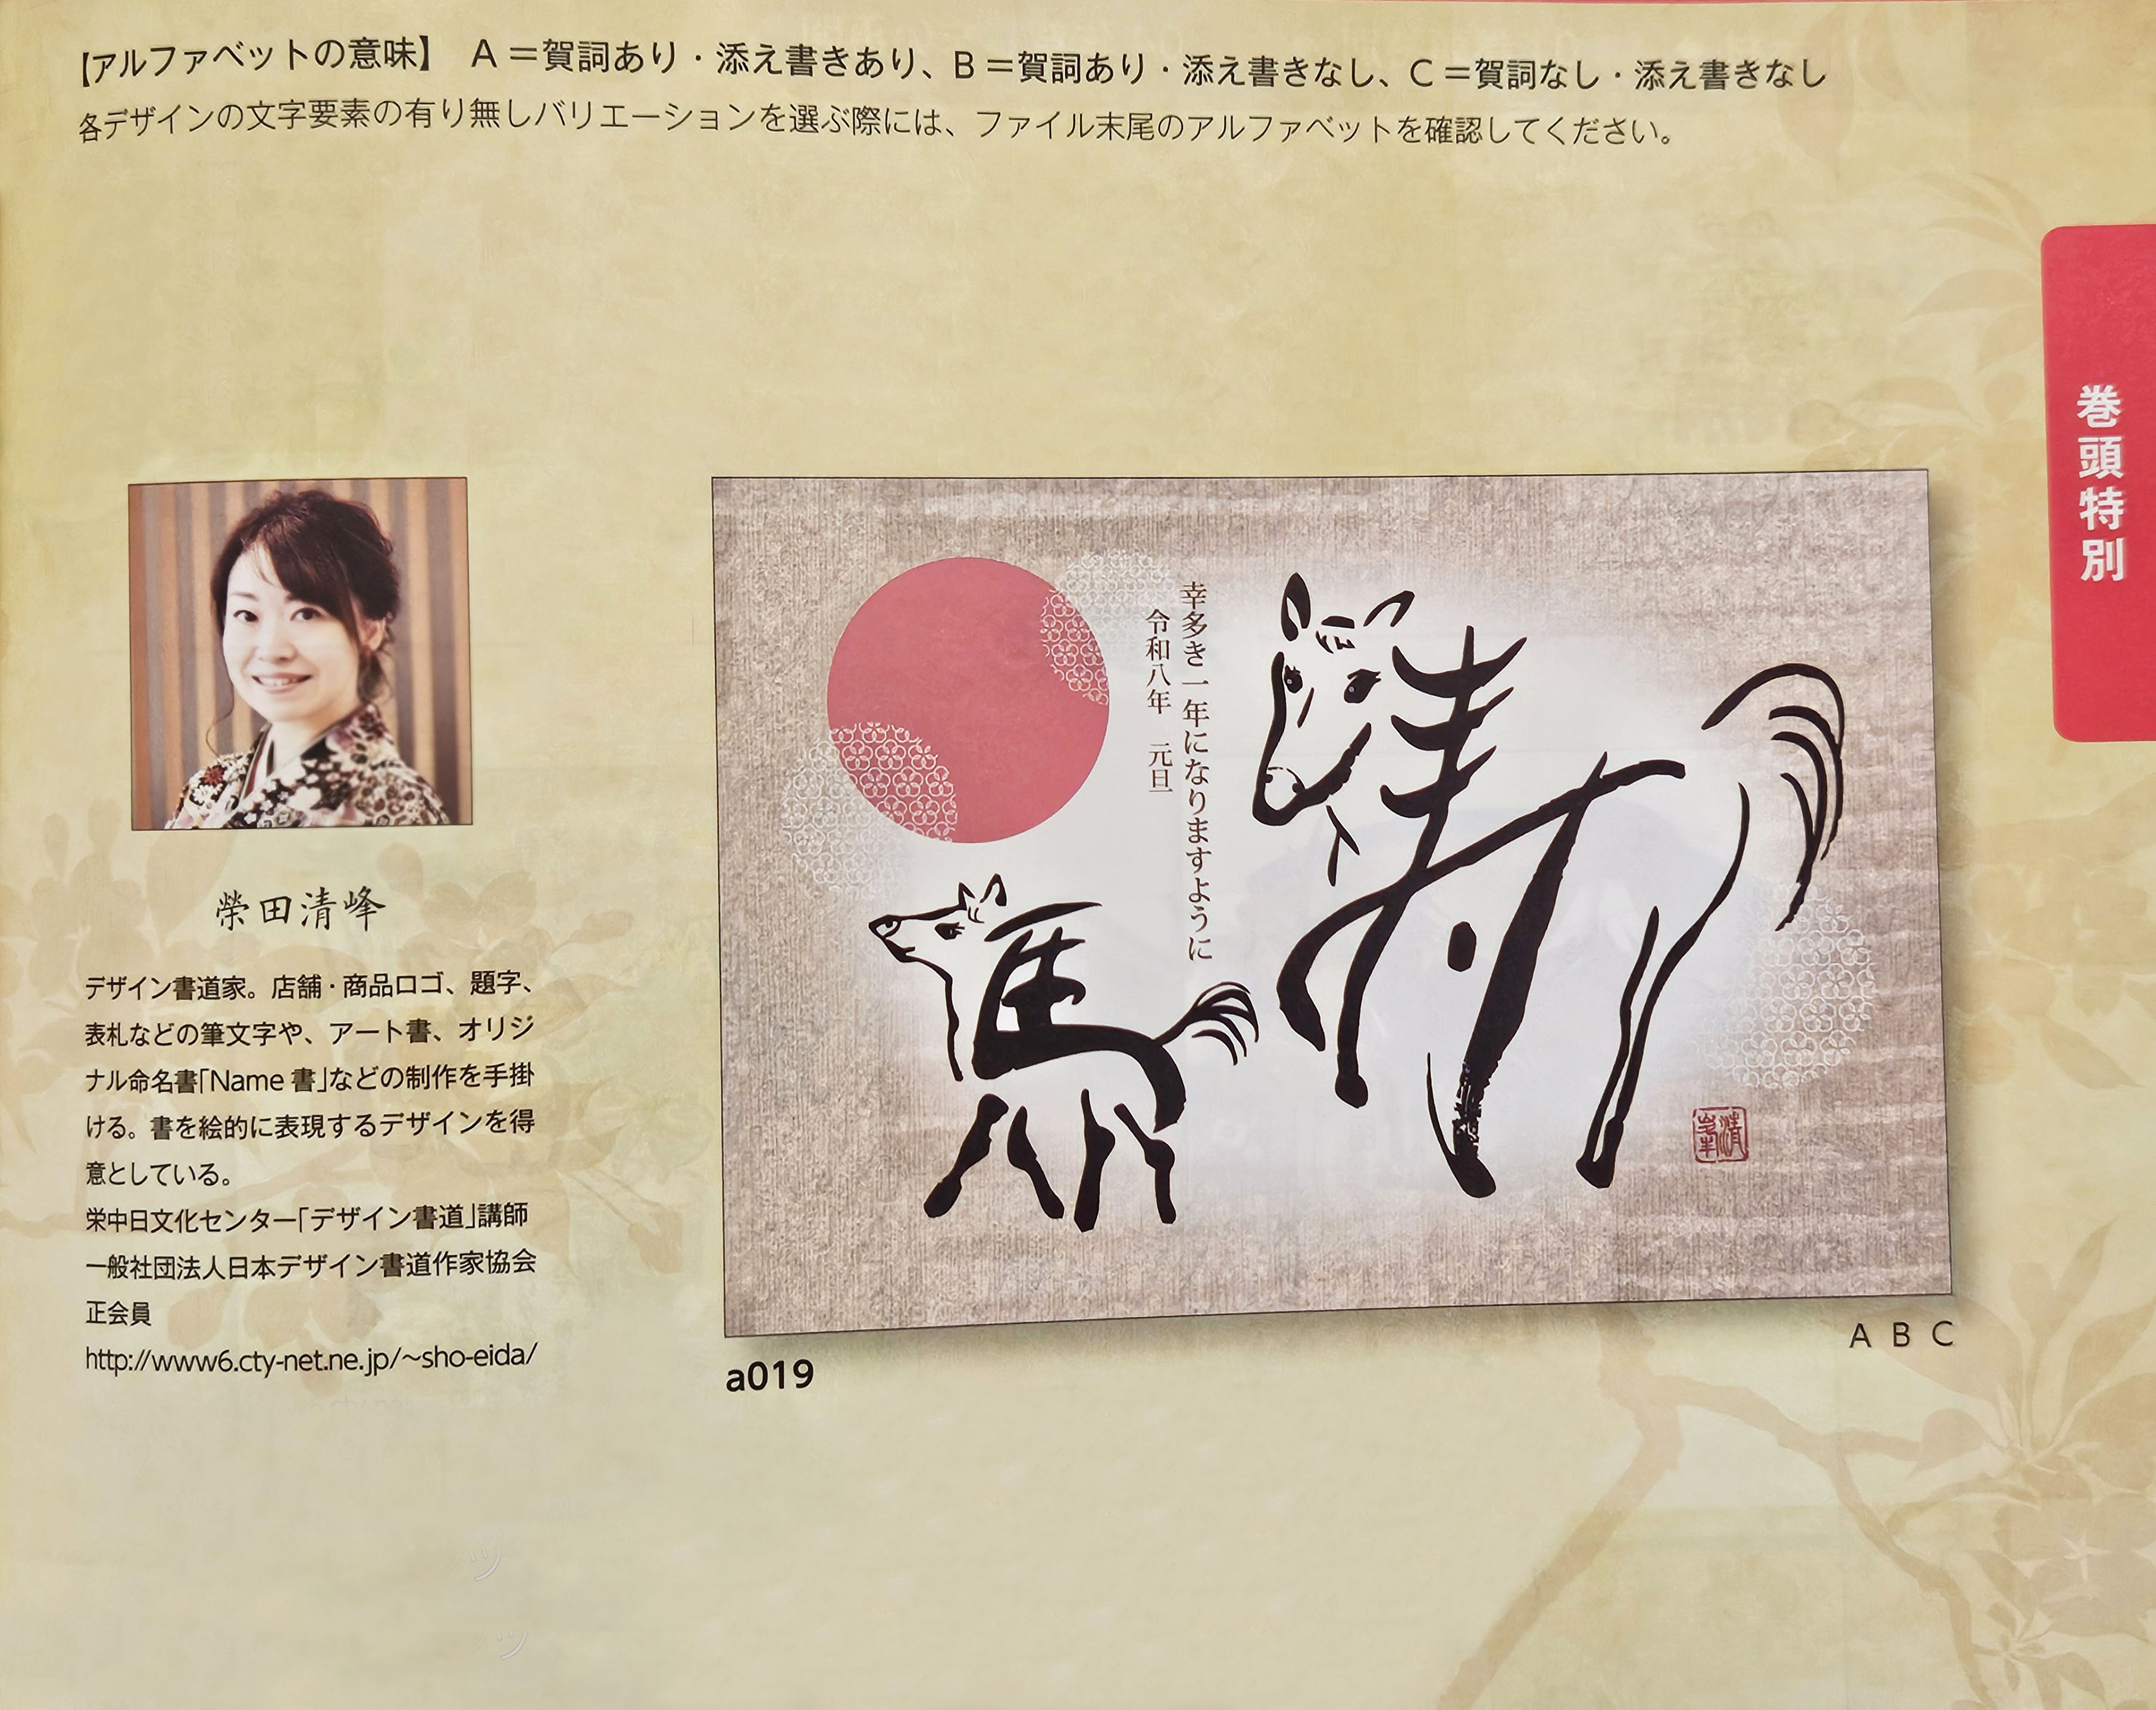 【アルファベットの意味】　A＝賀詞あり・添え書きあり、B＝賀詞あり・添え書きなし、C＝賀詞なし・添え書きなし
各デザインの文字要素の有り無しバリエーションを選ぶ際には、ファイル末尾のアルファベットを確認してください。
巻頭特別
榮田清峰
デザイン書道家。店舗・商品ロゴ、題字、
表札などの筆文字や、アート書、オリジ
ナル命名書「Name 書」などの制作を手掛
ける。書を絵的に表現するデザインを得
意としている。
栄中日文化センター「デザイン書道」講師
一般社団法人日本デザイン書道作家協会
正会員
http://www6.cty-net.ne.jp/~sho-eida/
寿
幸多き一年になりますように
令和八年　元旦
馬
清峯
a019
A B C